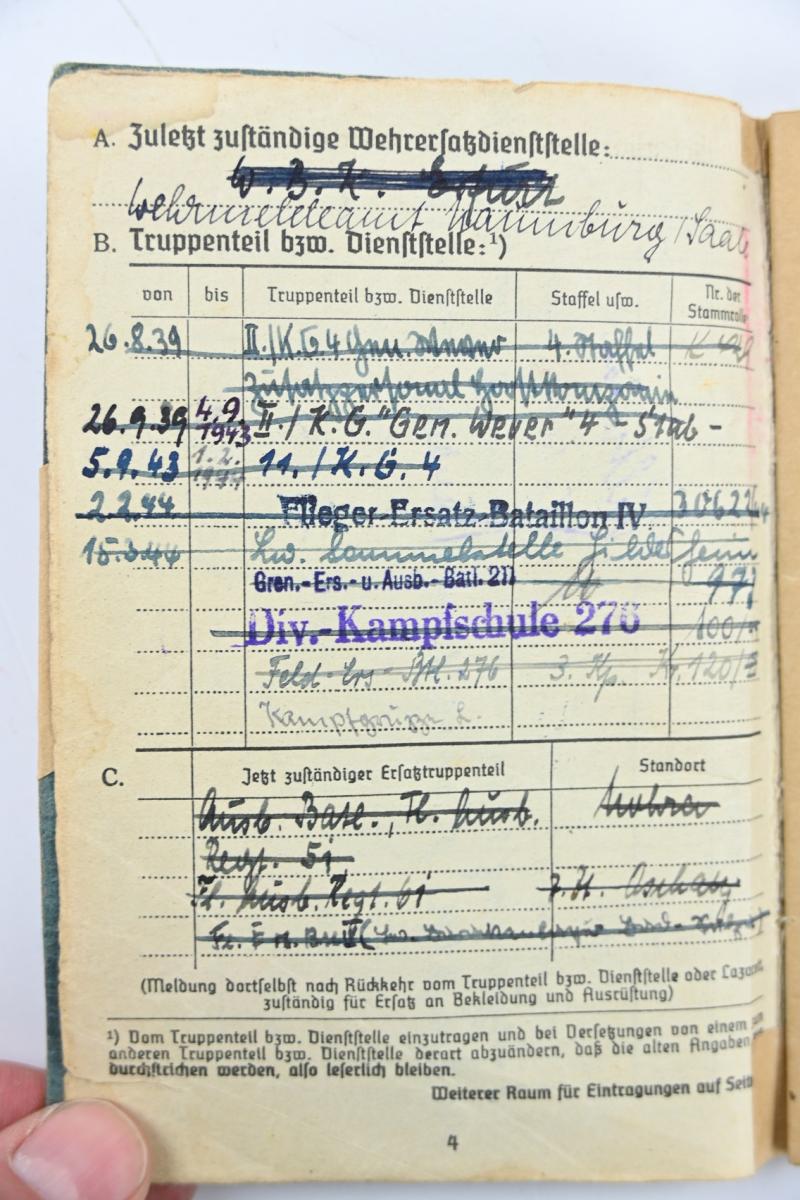 A. Zuletzt zuständige Wehrersatzdienststelle:
W. B. K. Erfurt
Wehrmeldeamt Naumburg/Saale
B. Truppenteil bzw. Dienststelle:¹)
von bis Truppenteil bzw. Dienststelle Staffel usw. Nr. der Stammrolle
26.8.39 II./K.G.4 Gen. Wever 4. Staffel
26.9.39 4.9.1943 II./K.G. "Gen. Wever" 4 - Stab -
5.9.43 1.2. 11./K.G. 4
2.2.44 Flieger-Ersatz-Bataillon IV
15.3.44 Lw. Sammelstelle Hildesheim
Gren.-Ers.- u. Ausb.-Batl. 211 97
Div.-Kampfschule 276 100/
Feld-Ers-Btl. 276 3. Kp. 120/
Kampfgruppe L.
C. Jetzt zuständiger Ersatztruppenteil Standort
Ausb. Batl., Fl. Ausb.
Regt. 51
Fl. Ausb. Regt. 61 Oschatz
(Meldung dortselbst nach Rückkehr vom Truppenteil bzw. Dienststelle oder Lazarett
zuständig für Ersatz an Bekleidung und Ausrüstung)
¹) Vom Truppenteil bzw. Dienststelle einzutragen und bei Versetzungen von einem zum
anderen Truppenteil bzw. Dienststelle derart abzuändern, daß die alten Angaben
durchstrichen werden, also leserlich bleiben.
Weiterer Raum für Eintragungen auf Seite
4